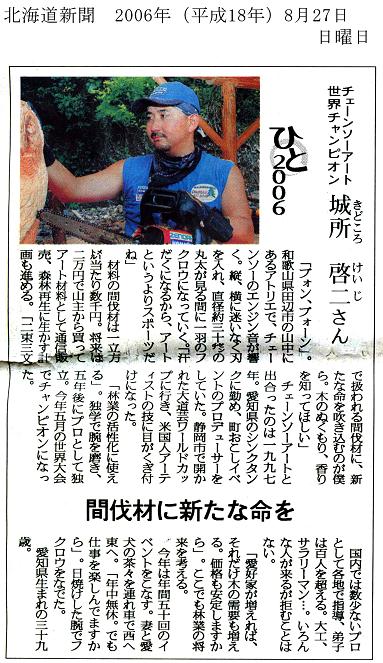 北海道新聞　2006年（平成18年）8月27日
日曜日
ひと2006
チェーンソーアート
世界チャンピオン
城所　啓二さん
きどころ　けいじ
「ブォン、ブォーン」。
和歌山県田辺市の山中に
あるアトリエで、チェー
ンソーのエンジン音が響
く。縦、横に迷いなく刃
を入れ、直径約三十㌢の
丸太が見る間に一羽のフ
クロウになっていく。「汗
だくになるから、アート
というよりスポーツだ
ね」
材料の間伐材は一立方
㍍当たり数千円。将来は
二万円で山主から買って
アート材料として通信販
売、森林再生に生かす計
画も進める。「二束三文
で扱われる間伐材に、新
たな命を吹き込むのが僕
ら。木のぬくもり、香り
を知ってほしい」
チェーンソーアートと
出合ったのは一九九七
年。愛知県のシンクタン
クに勤め、町おこしイベ
ントのプロデューサーを
していた。静岡市で開か
れた大道芸ワールドカッ
プに行き、米国人アーテ
ィストの技に目がくぎ付
けになった。
「林業の活性化に使え
る」。独学で腕を磨き、
五年後にプロとして独
立。今年五月の世界大会
でチャンピオンになっ
間伐材に新たな命を
国内では数少ないプロ
として各地で指導、弟子
は百人を超える。大工、
サラリーマン…。いろん
な人が来るが拒むことは
ない。
「愛好家が増えれば、
それだけ木の需要も増え
る。価格も安定しますか
ら」。ここでも林業の将
来を考える。
今年は年間五十回のイ
ベントをこなす。妻と愛
犬の茶々を連れ車で西へ
東へ。「年中無休。でも
仕事を楽しんでますか
ら」。日焼けした腕でフ
クロウをなでた。
愛知県生まれの三十九
歳。